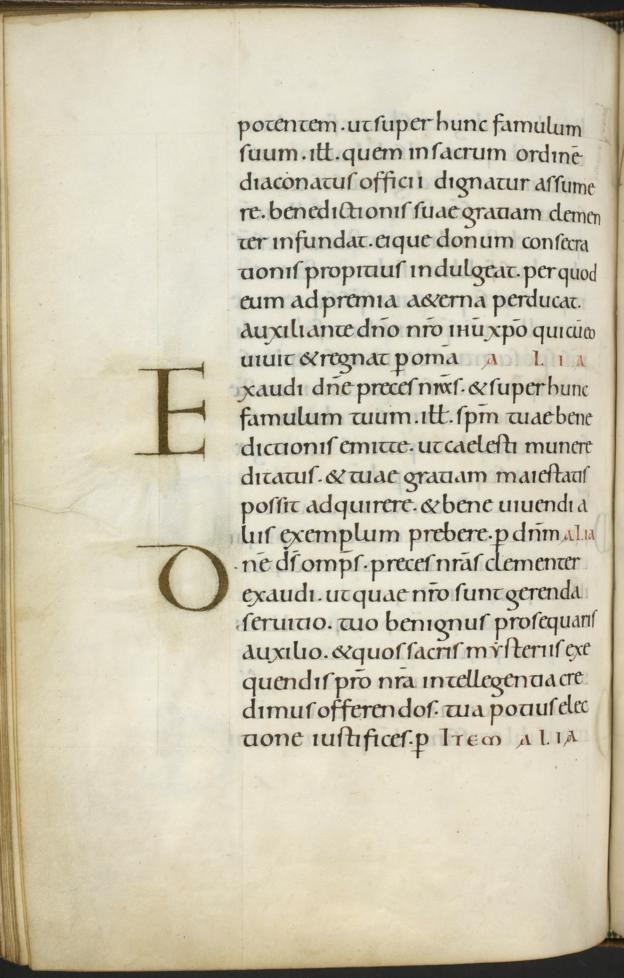 potentem. ut super hunc famulum
suum. ill. quem in sacrum ordinē
diaconatus officii dignatur assume
re. benedictionis suae gratiam clemen
ter infundat. eique donum consecra
tionis propitius indulgeat. per quod
eum ad premia aeterna perducat.
auxiliante dn̄o nr̄o ihū xpō qui cū eo
uiuit & regnat ꝑ omā A L I A
Exaudi dn̄e preces nr̄as. & super hunc
famulum tuum. ill. sp̄m tuae bene
dictionis emitte. ut caelesti munere
ditatus. & tuae gratiam maiestatis
possit adquirere. & bene uiuendi a
liis exemplum prebere. ꝑ dn̄m ALIA
Dn̄e ds̄ omp̄s. preces nr̄as clementer
exaudi. ut quae nr̄o sunt gerenda
seruitio. tuo benignus prosequaris
auxilio. & quos sacris mẏsteriis exe
quendis pro nr̄a intellegentia cre
dimus offerendos. tua potius elec
tione iustifices. ꝑ ITEM ALIA